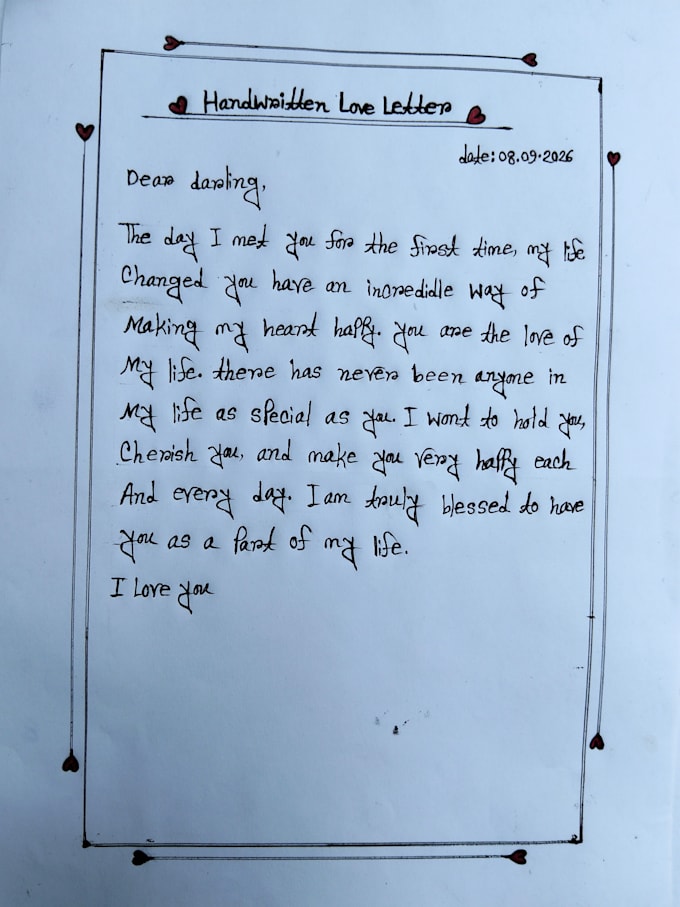 Handwritten Love Letter
date: 08.09.2026
Dear darling,
The day I met you for the first time, my life
Changed you have an incredidle way of
Making my heart happy. you are the love of
My life. there has never been anyone in
My life as special as you. I wont to hold you,
Cherish you, and make you very happy each
And every day. I am truly blessed to have
you as a Part of my life.
I Love you